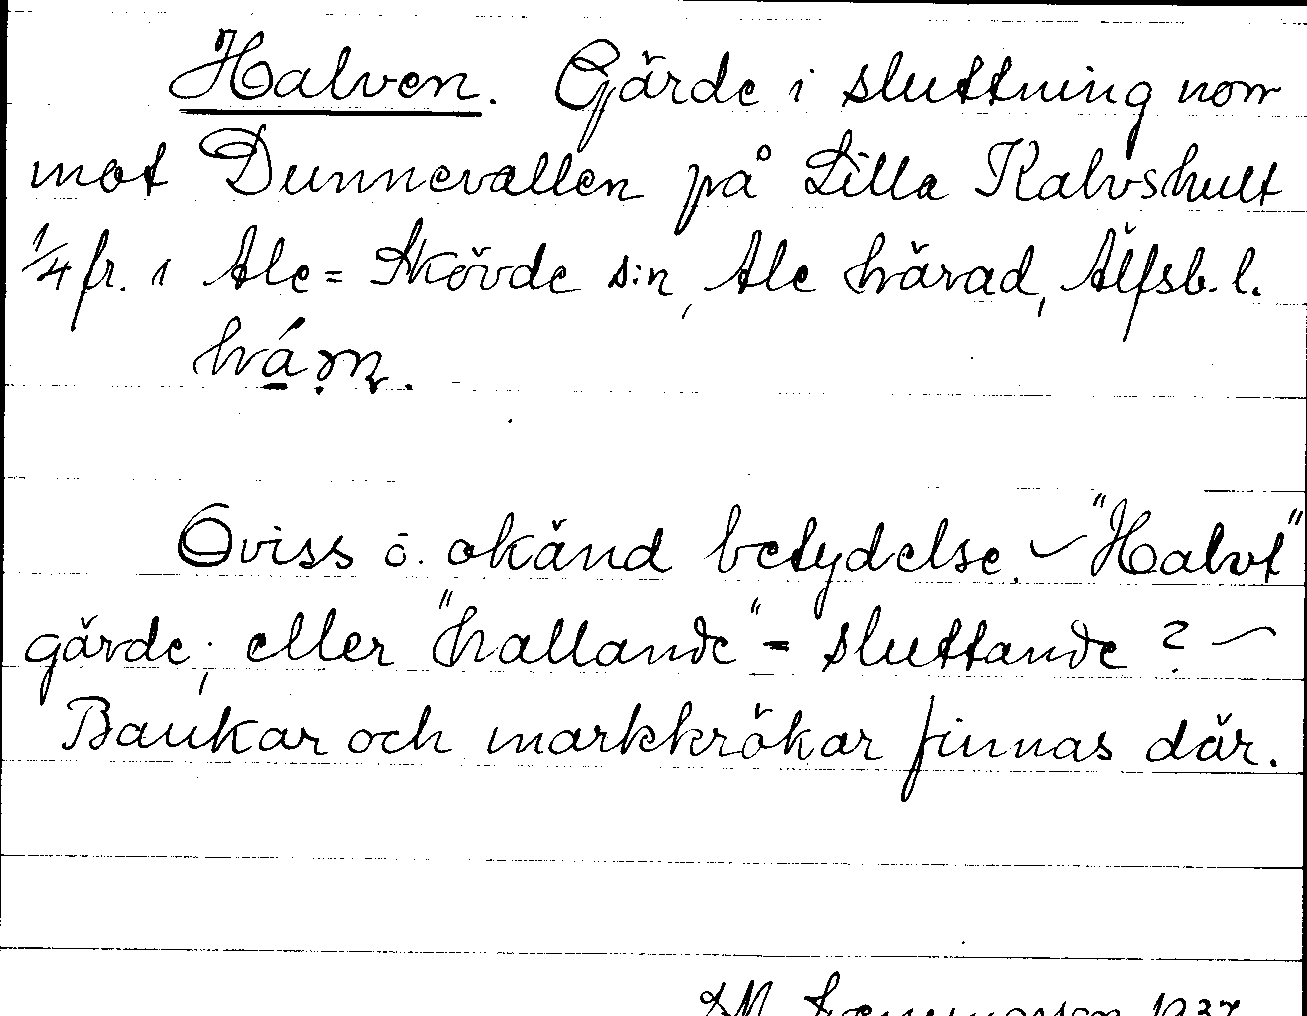 Halven. Gärde i sluttning norr
mot Dunnevallen på Lilla Kalvshult
1/4 fr. i Ale=Skövde s:n, Ale härad, Älfsb. l.
Oviss o. okänd betydelse. – "Halvt"
gärde; eller "hallande" = sluttande? –
Bankar och markkrökar finnas där.
1937